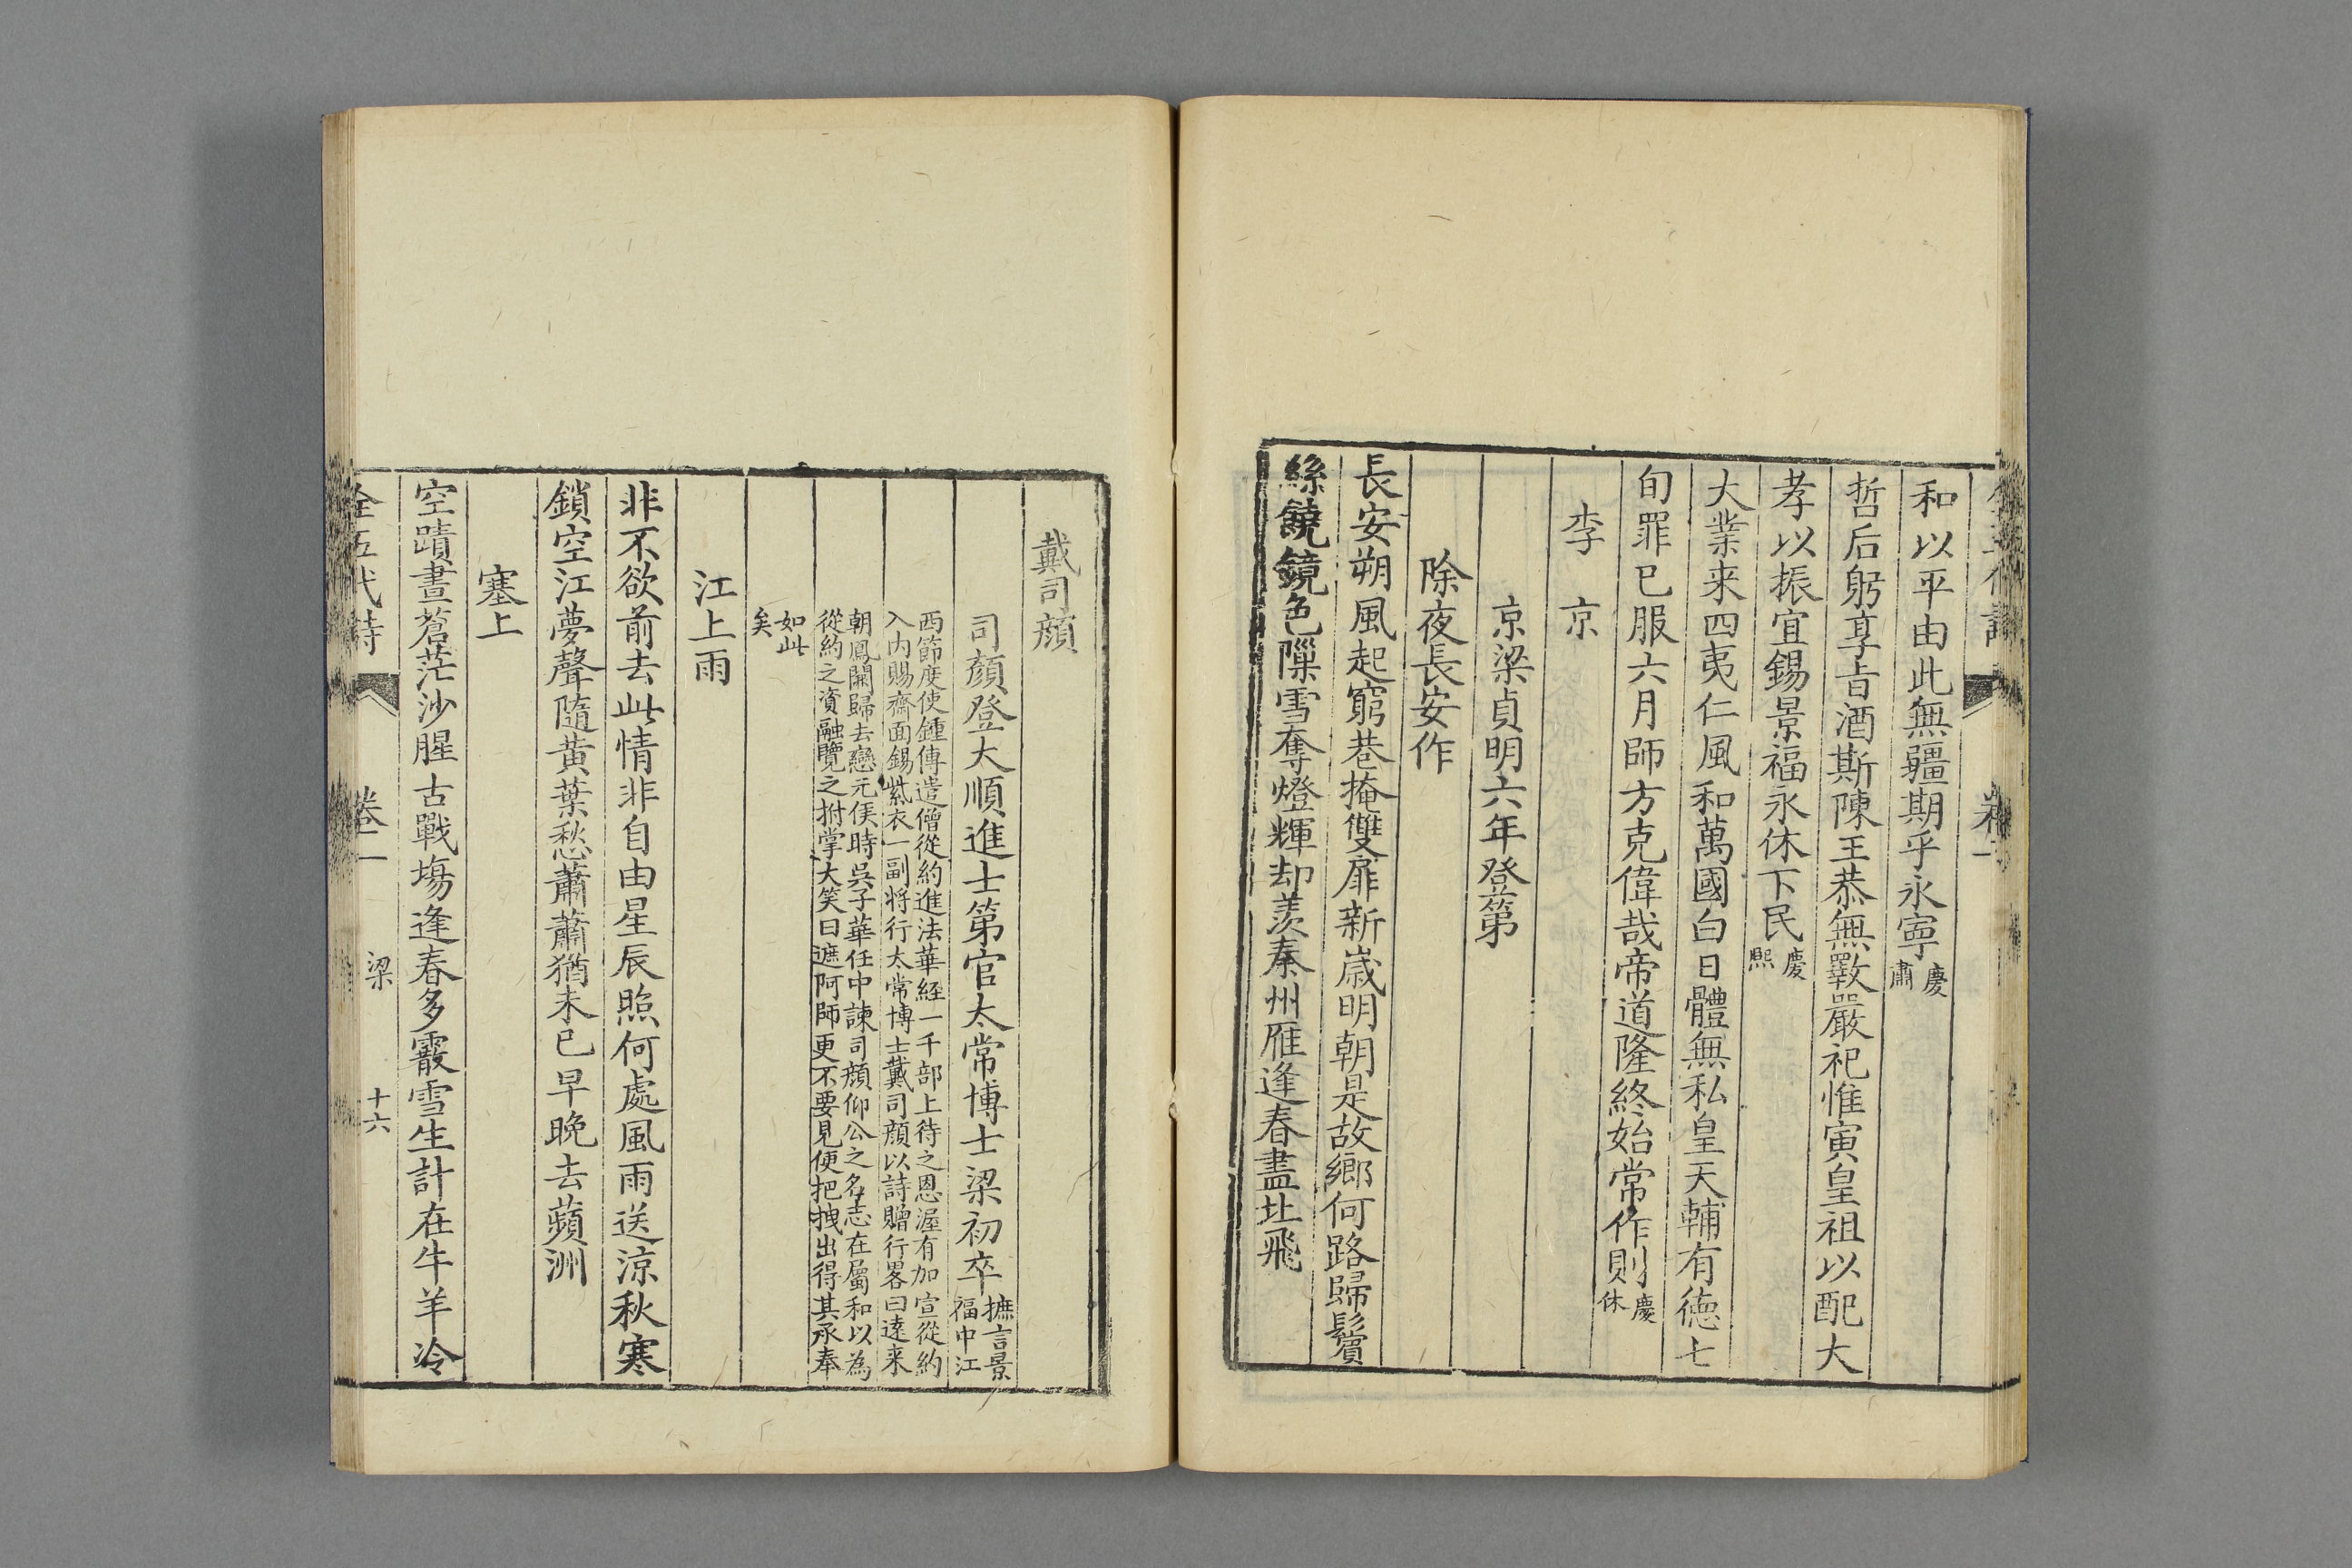 和以平由此無疆期乎永寧慶肅
哲后躬享旨酒斯陳王恭無斁嚴祀惟寅皇祖以配大
孝以振宜錫景福永休下民慶熙
大業来四夷仁風和萬國白日體無私皇天輔有德七
旬罪已服六月師方克偉哉帝道隆終始常作則慶休
李京
京梁貞明六年登第
除夜長安作
長安朔風起窮巷掩雙扉新歲明朝是故鄉何路歸鬢
絲饒鏡色隟雪奪燈輝却羨秦州雁逢春盡北飛
戴司顏
司顏登大順進士第官太常博士梁初卒摭言景福中江
西節度使鍾傳遣僧從約進法華經一千部上待之恩渥有加宣從約
入内賜齋面錫紫衣一副將行太常博士戴司顏以詩贈行畧曰遠来
朝鳳闕歸去戀元侯時吳子華任中諫司顏仰公之名志在屬和以為
從約之資融覽之拊掌大笑曰遮阿師更不要見便把拽出得其承奉
如此矣
江上雨
非不欲前去此情非自由星辰照何處風雨送涼秋寒
鎖空江夢聲隨黃葉愁蕭蕭猶未已早晚去蘋洲
塞上
空蹟晝蒼茫沙腥古戰塲逢春多霰雪生計在牛羊冷
全五代詩 卷一 梁 十六